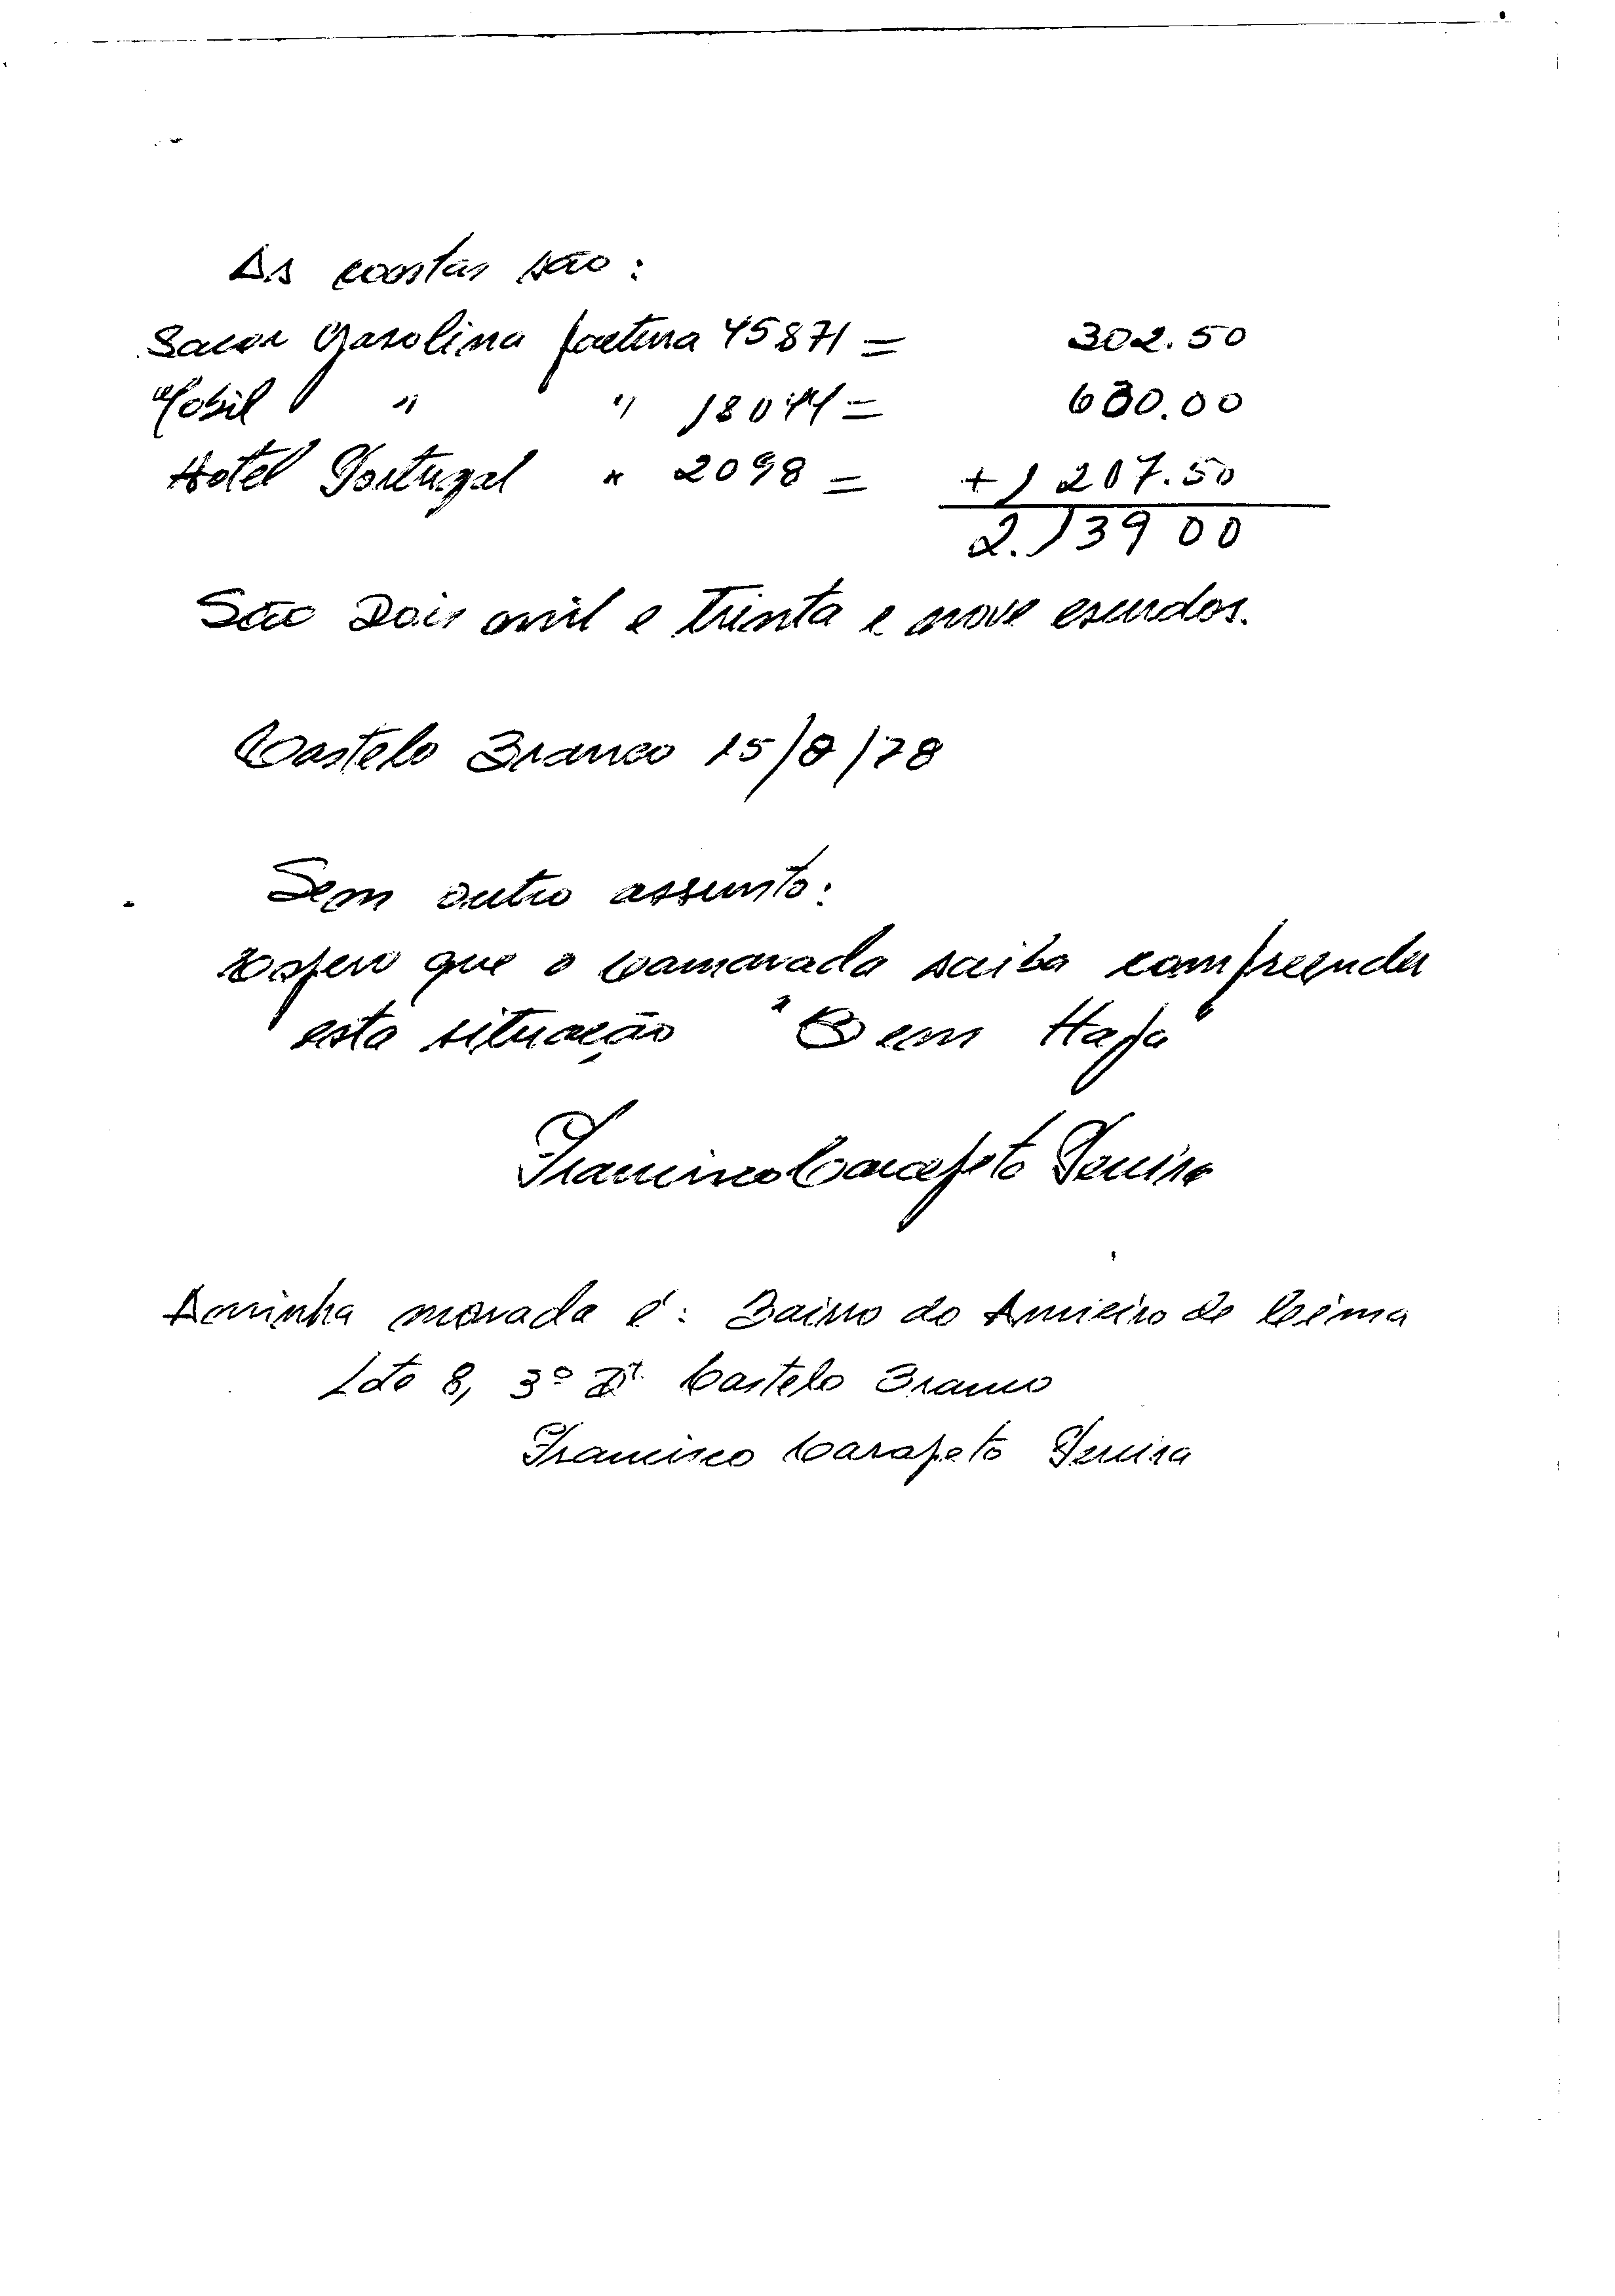 As contas são:
Sacor Gasolina factura 45871 = 302.50
Mobil " " 18044 = 630.00
Hotel Portugal " 2098 = + 1 207.50
2.139 00
São Dois mil e trinta e nove escudos.
Castelo Branco 15/8/78
Sem outro assunto:
Espero que o Camarada saiba compreender
esta situação "Bem Haja"
Francisco Carapeto Ferreira
A minha morada é: Bairro do Amieiro de Cima
Lote 8, 3º Dt. Castelo Branco
Francisco Carapeto Ferreira